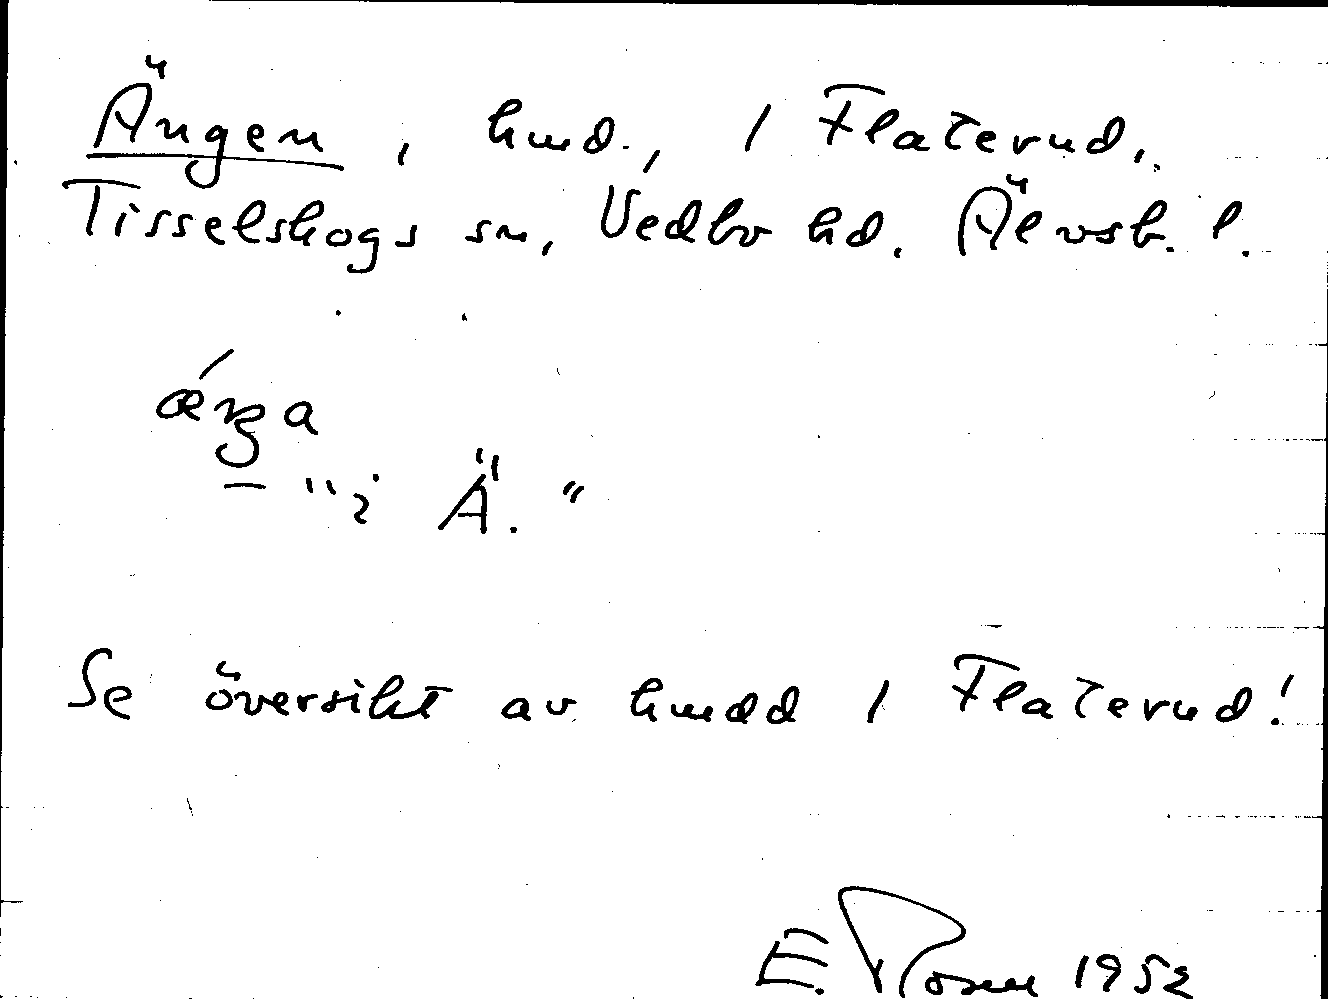 Ängen, hmd., 1 Flaterud,
Tisselskogs sn, Vedbo hd. Älvsb. l.
ǽŋa
— "i Ä."
Se översikt av hmdd 1 Flaterud!
E. Rosell 1952